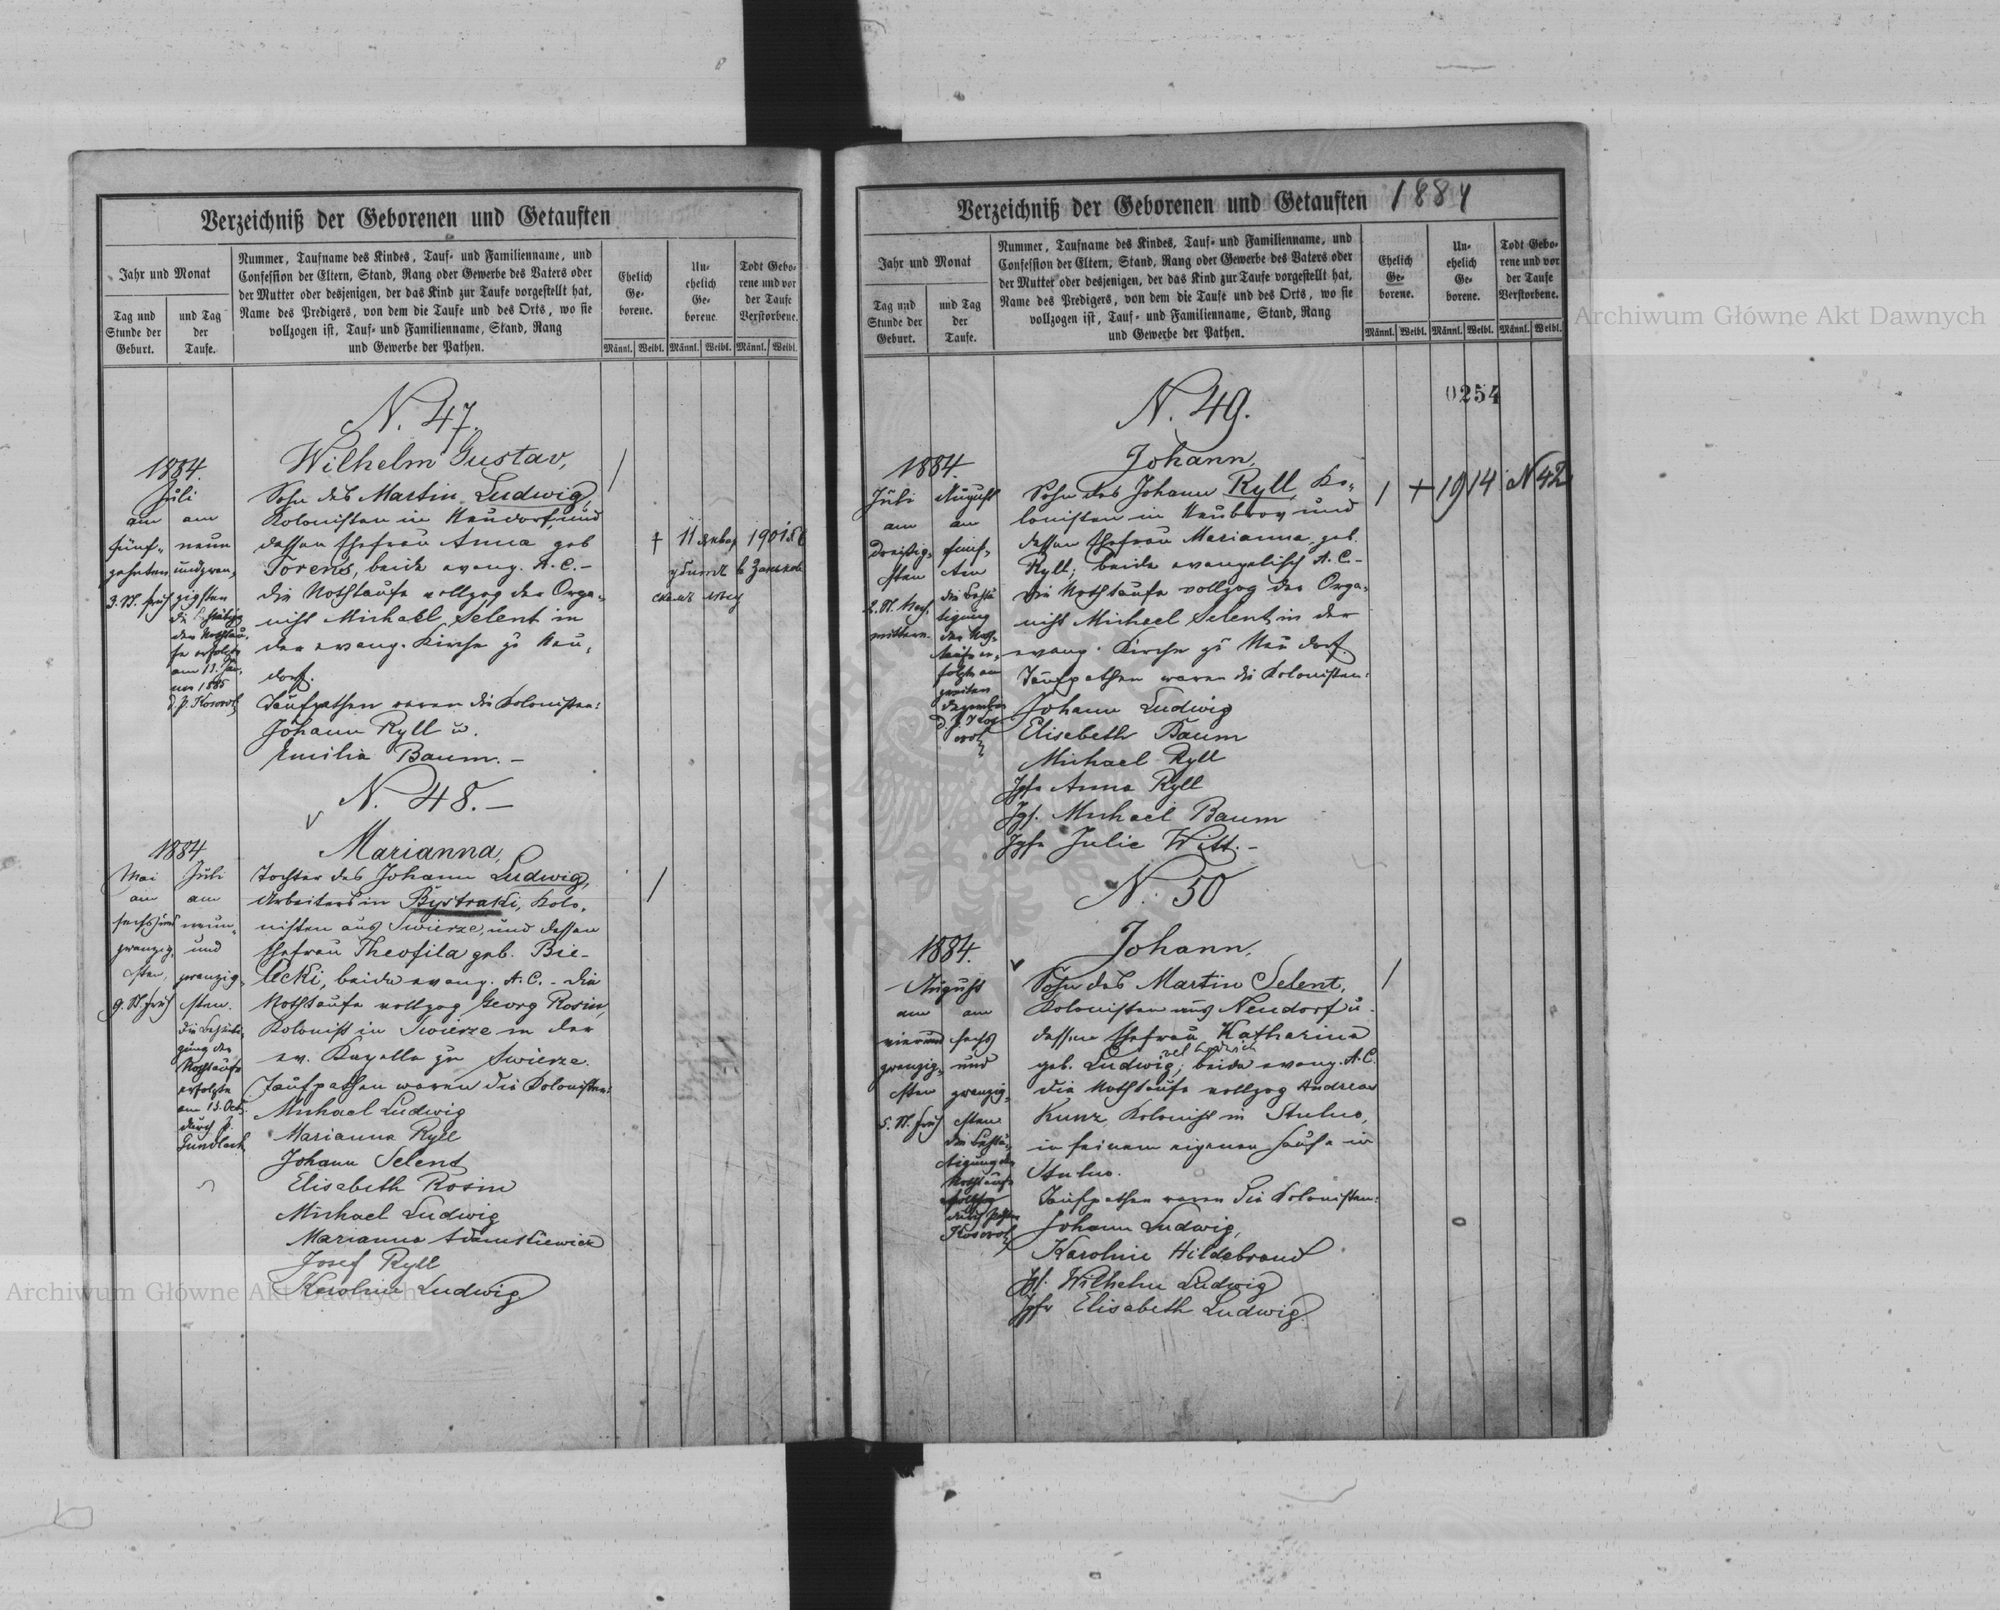 Verzeichniß der Geborenen und Getauften
Jahr und Monat
Tag und
Stunde der
Geburt.
und Tag
der
Taufe.
Nummer, Taufname des Kindes, Tauf- und Familienname, und
Confession der Eltern, Stand, Rang oder Gewerbe des Vaters oder
der Mutter oder desjenigen, der das Kind zur Taufe vorgestellt hat,
Name des Predigers, von dem die Taufe und des Orts, wo sie
vollzogen ist, Tauf- und Familienname, Stand, Rang
und Gewerbe der Pathen.
Ehelich
Ge-
borene.
Un-
ehelich
Ge-
borene
Todt Gebo-
rene und vor
der Taufe
Verstorbene.
Männl. Weibl. Männl. Weibl. Männl. Weibl.
N. 47.
Wilhelm Gustav,
1884.
Juli
am
fünf-
zehnten
3. U. früh
am
neun
undzwan-
zigsten
die Bestätig
der Nothtau-
fe erfolgte
am 13. Jän-
ner 1885
d. P. Kosorotz
Sohn des Martin Ludwig,
Kolonisten in Neudorf und
dessen Ehefrau Anna geb
Torens, beide evang. A. C. –
die Nothtaufe vollzog der Orga-
nist Michael Selent in
der evang. Kirche zu Neu-
dorf.
Taufpathen waren die Kolonisten:
Johann Ryll u.
Emilia Baum. –
† 11 1901
N. 48. –
Marianna,
1884
Mai
am
sechs und
zwanzig-
sten,
9. U. früh
Juli
am
neun-
und
zwanzig-
sten.
die Bestäti-
gung der
Nothtaufe
erfolgte
am 13. Oct.
durch P.
Gundlach
Tochter des Johann Ludwig,
Arbeiters in Bystraki, Kolo-
nisten aus Swierze, und dessen
Ehefrau Theofila geb. Bie-
lecki, beide evang. A. C. – die
Nothtaufe vollzog Georg Rosin,
Kolonist in Swierze in der
ev. Kapelle zu Swierze.
Taufpathen waren die Kolonisten:
Michael Ludwig
Marianna Ryll
Johann Selent
Elisabeth Rosin
Michael Ludwig
Marianna Adamskiewicz
Josef Ryll
Karoline Ludwig
Verzeichniß der Geborenen und Getauften 1884
Jahr und Monat
Tag und
Stunde der
Geburt.
und Tag
der
Taufe.
Nummer, Taufname des Kindes, Tauf- und Familienname, und
Confession der Eltern, Stand, Rang oder Gewerbe des Vaters oder
der Mutter oder desjenigen, der das Kind zur Taufe vorgestellt hat,
Name des Predigers, von dem die Taufe und des Orts, wo sie
vollzogen ist, Tauf- und Familienname, Stand, Rang
und Gewerbe der Pathen.
Ehelich
Ge-
borene.
Un-
ehelich
Ge-
borene.
Todt Gebo-
rene und vor
der Taufe
Verstorbene.
Männl. Weibl. Männl. Weibl. Männl. Weibl.
0254
N. 49.
Johann,
1884
Juli
am
dreißig-
sten
2. U. Nach-
mittern.
August
am
fünf-
ten
die Bestä
tigung
der Noth-
taufe er-
folgte am
zweiten
dezember
d. P. Kos
orotz
Sohn des Johann Ryll, Ko-
lonisten in Neubrow und
dessen Ehefrau Marianna, geb.
Ryll; beide evangelisch A. C. –
die Nothtaufe vollzog der Orga-
nist Michael Selent in der
evang. Kirche zu Neudorf.
Taufpathen waren die Kolonisten:
Johann Ludwig
Elisabeth Baum
Michael Ryll
Jgfr Anna Ryll
Jgs. Michael Baum
Jgfr Julie Witt. –
+ 1914 N 42
N. 50
Johann,
1884.
August
am
vierund
zwanzig-
sten
5. U. früh
am
sechs
und
zwanzig-
sten
die Bestä-
tigung der
Nothtaufe
vollzog
durch Pastor
Kosorotz
Sohn des Martin Selent,
Kolonisten aus Neudorf u.
dessen Ehefrau Katharina
vel Ludwich
geb. Ludwig; beide evang. A. C.
die Nothtaufe vollzog Andreas
Kunz, Kolonist in Stulno,
in seinem eigenen Hause in
Stulno.
Taufpathen waren die Kolonisten:
Johann Ludwig,
Karoline Hildebrand
Jgs. Wilhelm Ludwig
Jgfr Elisabeth Ludwig
Archiwum Główne Akt Dawnych
Archiwum Główne Akt Dawnych